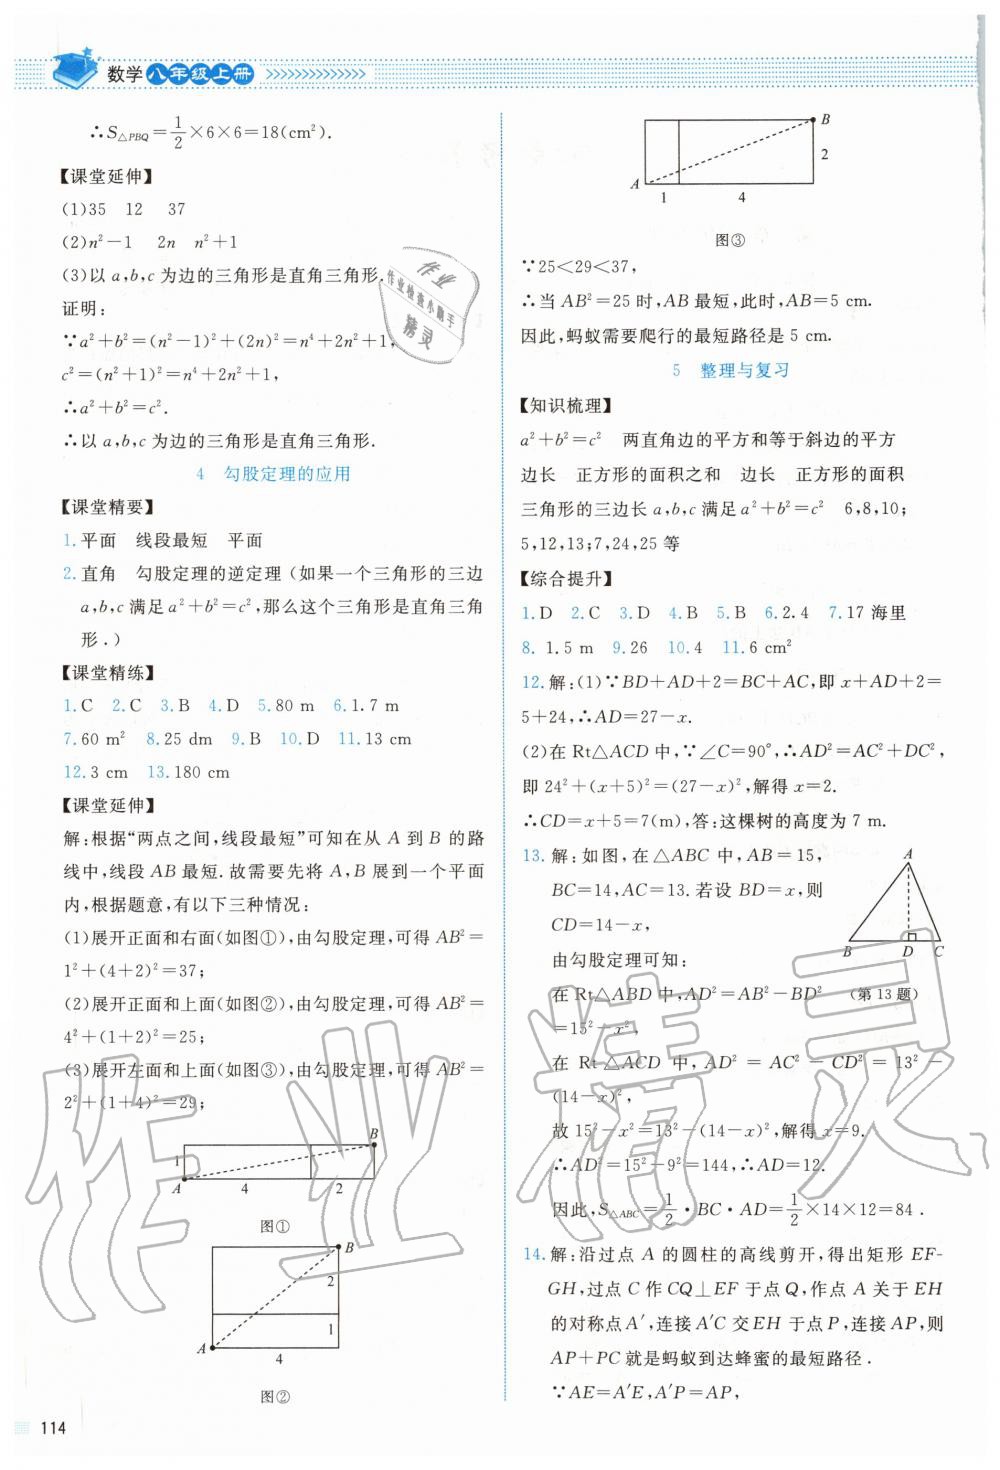 数学八年级上册
∴S△PBQ=1/2×6×6=18(cm²).
【课堂延伸】
(1)35 12 37
(2)n²-1 2n n²+1
(3)以 a,b,c 为边的三角形是直角三角形.
证明:
∵a²+b²=(n²-1)²+(2n)²=n⁴+2n²+1,
c²=(n²+1)²=n⁴+2n²+1,
∴a²+b²=c².
∴以 a,b,c 为边的三角形是直角三角形.
4 勾股定理的应用
【课堂精要】
1.平面 线段最短 平面
2.直角 勾股定理的逆定理(如果一个三角形的三边
a,b,c 满足 a²+b²=c²,那么这个三角形是直角三角
形.)
【课堂精练】
1.C 2.C 3.B 4.D 5.80 m 6.1.7 m
7.60 m² 8.25 dm 9.B 10.D 11.13 cm
12.3 cm 13.180 cm
【课堂延伸】
解:根据“两点之间,线段最短”可知在从 A 到 B 的路
线中,线段 AB 最短.故需要先将 A,B 展到一个平面
内,根据题意,有以下三种情况:
(1)展开正面和右面(如图①),由勾股定理,可得 AB²=
1²+(4+2)²=37;
(2)展开正面和上面(如图②),由勾股定理,可得 AB²=
4²+(1+2)²=25;
(3)展开左面和上面(如图③),由勾股定理,可得 AB²=
2²+(1+4)²=29;
B
1
A 4 2
图①
B
2
1
A
4
图②
114
B
2
A
1 4
图③
∵25<29<37,
∴当 AB²=25 时,AB 最短,此时,AB=5 cm.
因此,蚂蚁需要爬行的最短路径是 5 cm.
5 整理与复习
【知识梳理】
a²+b²=c² 两直角边的平方和等于斜边的平方
边长 正方形的面积之和 边长 正方形的面积
三角形的三边长 a,b,c 满足 a²+b²=c² 6,8,10;
5,12,13;7,24,25 等
【综合提升】
1.D 2.C 3.D 4.B 5.B 6.2.4 7.17 海里
8.1.5 m 9.26 10.4 11.6 cm²
12.解:(1)∵BD+AD+2=BC+AC,即 x+AD+2=
5+24,∴AD=27-x.
(2)在 Rt△ACD 中,∵∠C=90°,∴AD²=AC²+DC²,
即 24²+(x+5)²=(27-x)²,解得 x=2.
∴CD=x+5=7(m),答:这棵树的高度为 7 m.
13.解:如图,在△ABC 中,AB=15,
BC=14,AC=13.若设 BD=x,则
CD=14-x,
由勾股定理可知:
在 Rt△ABD 中,AD²=AB²-BD²
=15²-x²,
在 Rt△ACD 中,AD²=AC²-CD²=13²-
(14-x)²,
故 15²-x²=13²-(14-x)²,解得 x=9.
∴AD²=15²-9²=144,∴AD=12.
因此,S△ABC=1/2·BC·AD=1/2×14×12=84.
A
B D C
(第 13 题)
14.解:沿过点 A 的圆柱的高线剪开,得出矩形 EF-
GH,过点 C 作 CQ⊥EF 于点 Q,作点 A 关于 EH
的对称点 A′,连接 A′C 交 EH 于点 P,连接 AP,则
AP+PC 就是蚂蚁到达蜂蜜的最短路径.
∵AE=A′E,A′P=AP,
作业
作业检查小助手
精灵
作业精灵